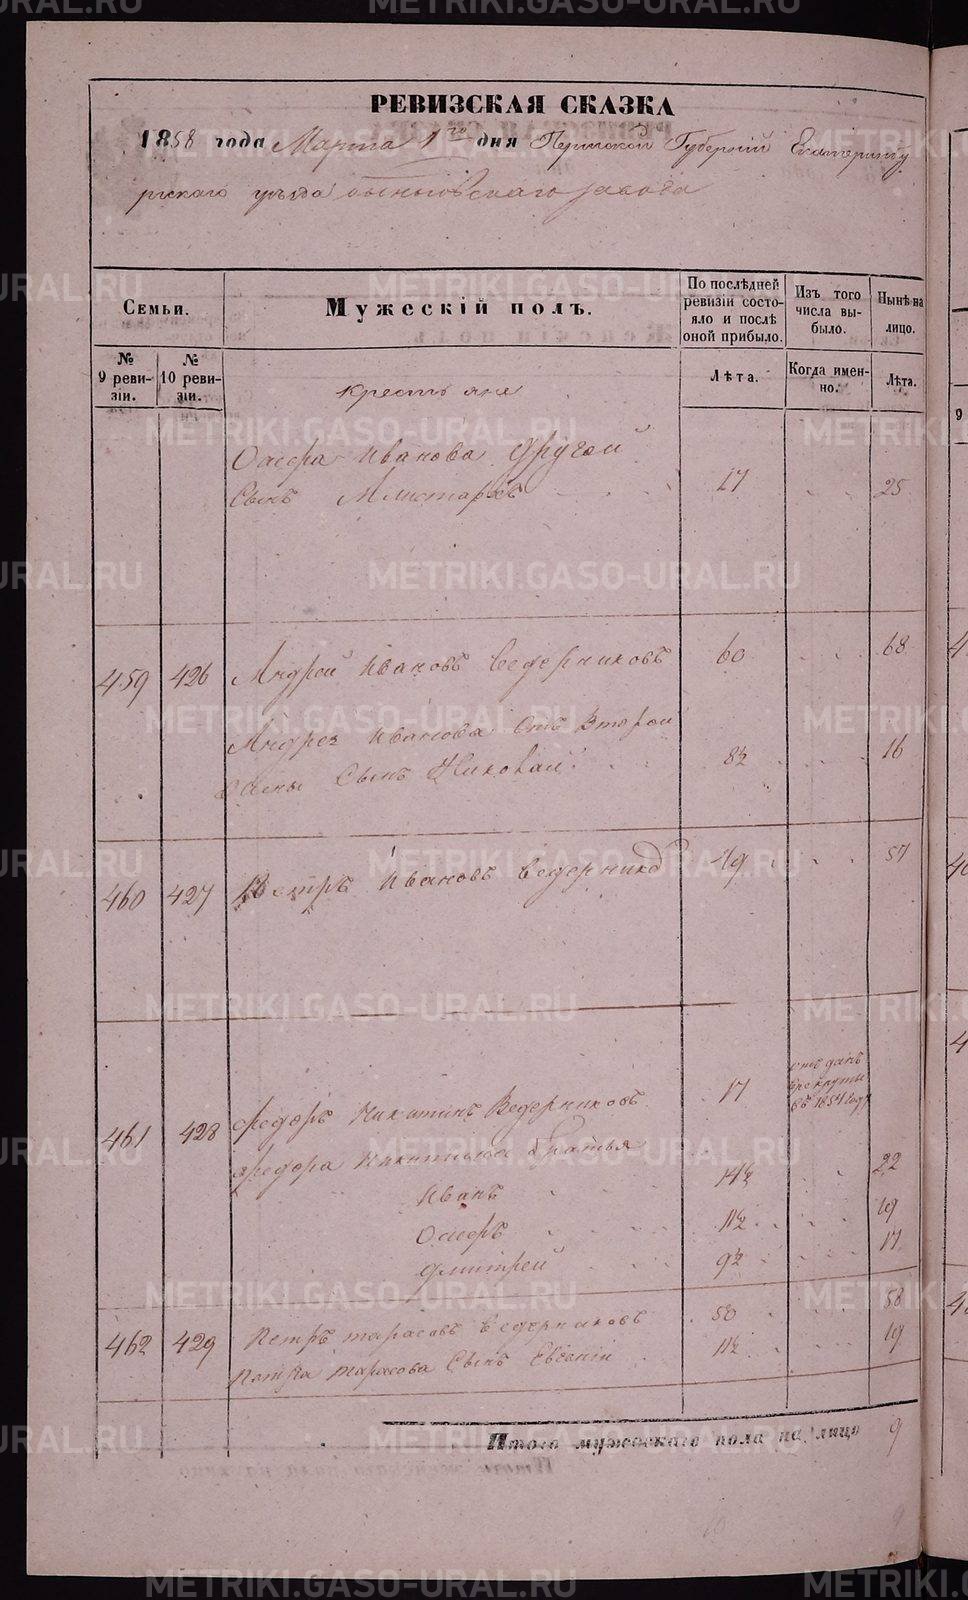 РЕВИЗСКАЯ СКАЗКА
1858 года Марта 1го дня Пермской Губерніи Екатеринбу
ргскаго уѣзда завода
Семьи.
Мужескій полъ.
По послѣдней ревизіи состояло и послѣ оной прибыло.
Изъ того числа выбыло.
Нынѣ на лицо.
№ 9 ревизіи.
№ 10 ревизіи.
Лѣта.
Когда именно.
Лѣта.
Крестьяне
Осипа Иванова другой
Сынъ 17 25
459 426 Андрей Ивановъ Ведерниковъ 60 68
Андрея Иванова Отъ Второй
жены Сынъ Николай 8½ 16
460 427 Петръ Ивановъ Ведерников 49 57
461 428 Федоръ Никитинъ Ведерниковъ 17 отданъ в рекруты въ 1854 году
Федора Никитина братья
Иванъ 14½ 22
Осипъ 11½ 19
Дмитрей 9½ 17
462 429 Петръ Тарасовъ Ведерниковъ 50 58
Петра Тарасова Сынъ Евгеній 11½ 19
Итого мужескаго пола на лицо 9
METRIKI.GASO-URAL.RU